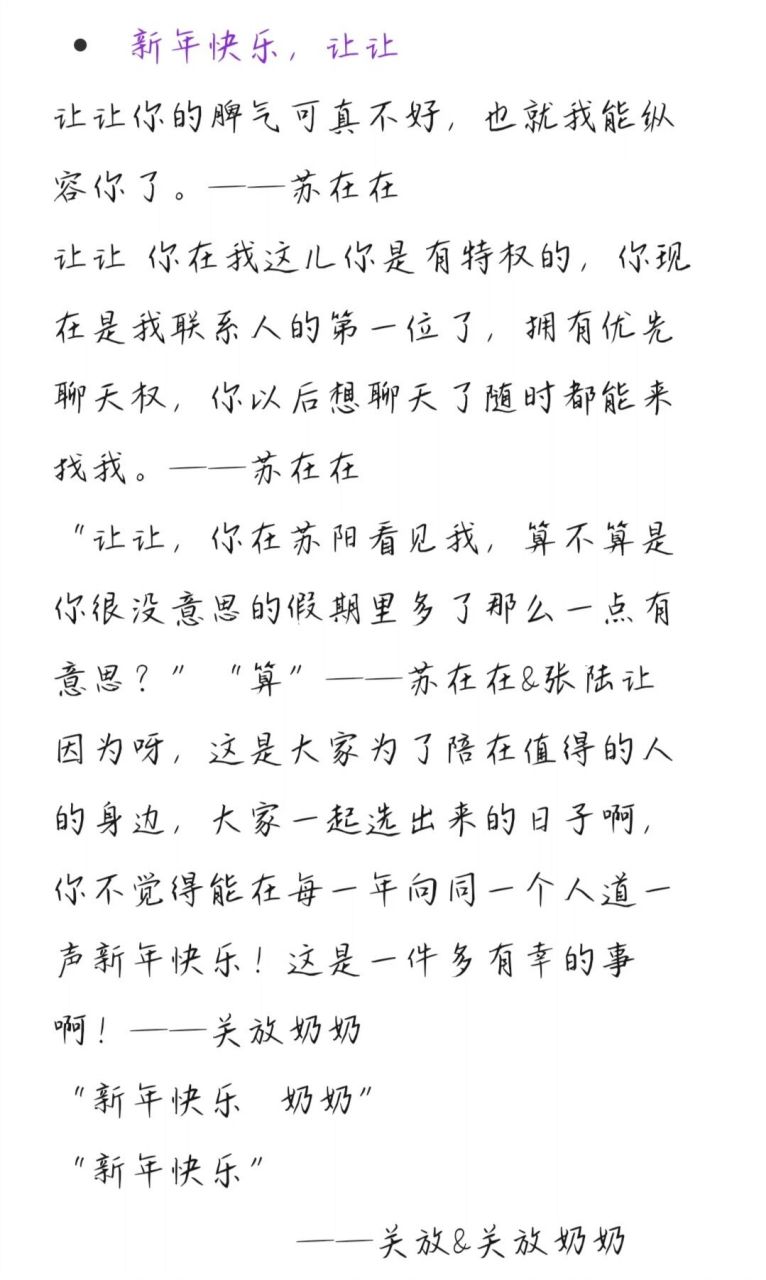 • 新年快乐，让让
让让你的脾气可真不好，也就我能纵
容你了。——苏在在
让让 你在我这儿你是有特权的，你现
在是我联系人的第一位了，拥有优先
聊天权，你以后想聊天了随时都能来
找我。——苏在在
“让让，你在苏阳看见我，算不算是
你很没意思的假期里多了那么一点有
意思？”“算”——苏在在&张陆让
因为呀，这是大家为了陪在值得的人
的身边，大家一起选出来的日子啊，
你不觉得能在每一年向同一个人道一
声新年快乐！这是一件多有幸的事
啊！——关放奶奶
“新年快乐 奶奶”
“新年快乐”
——关放&关放奶奶